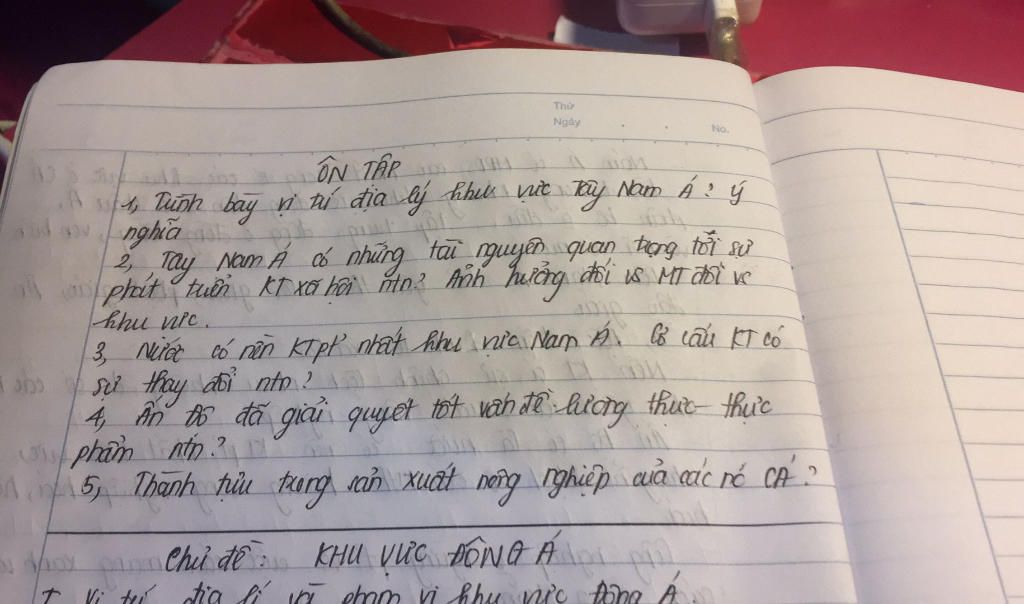 Thứ
Ngày . . No.
ÔN TẬP
1, Trình bày vị trí địa lý khu vực Tây Nam Á? ý
nghĩa
2, Tây Nam Á có những tài nguyên quan trọng tới sự
phát triển KT xã hội ntn? Ảnh hưởng đối vs MT đối vs
khu vực.
3, Nước có nền KTpt nhất khu vực Nam Á. Cơ cấu KT có
sự thay đổi ntn?
4, Ấn Độ đã giải quyết tốt vấn đề lương thực - thực
phẩm ntn?
5, Thành tựu trong sản xuất nông nghiệp của các nc CÁ?
Chủ đề: KHU VỰC ĐÔNG Á
I Vị trí địa lí và phạm vi khu vực Đông Á.